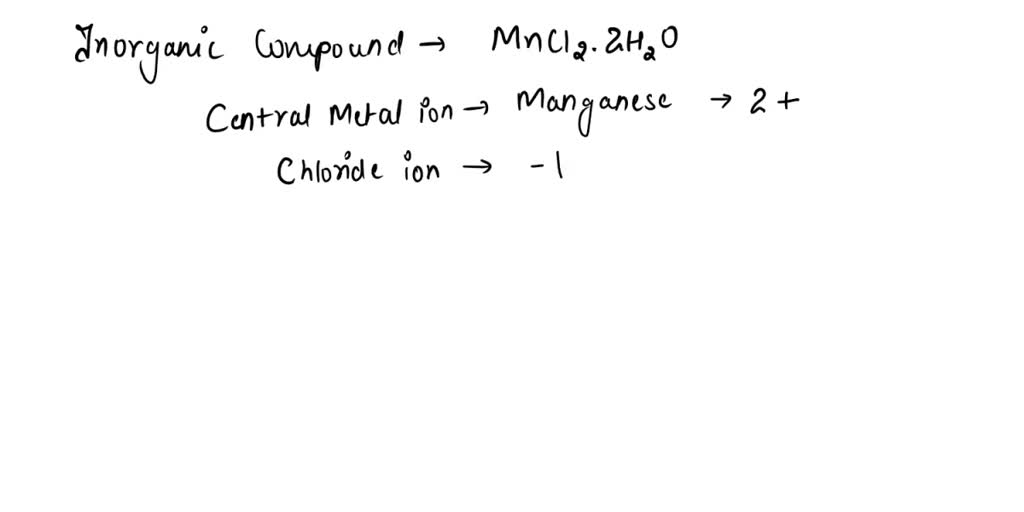 Inorganic Compound → MnCl₂.2H₂O
Central Metal ion → Manganese → 2+
Chloride ion → -1